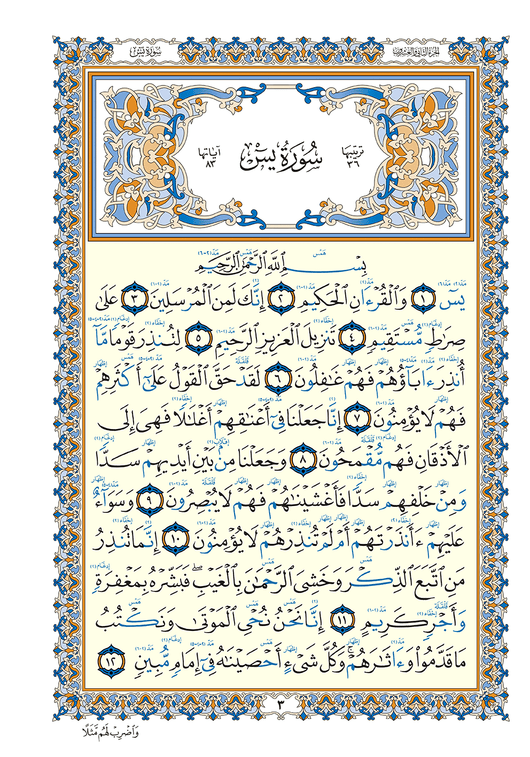 سورة يس
الجزء الثاني والعشرون
ترتيبها ٣٦
سُورَةُ يسٓ
آياتها ٨٣
بِسْمِ ٱللَّهِ ٱلرَّحْمَٰنِ ٱلرَّحِيمِ
يسٓ ١ وَٱلْقُرْءَانِ ٱلْحَكِيمِ ٢ إِنَّكَ لَمِنَ ٱلْمُرْسَلِينَ ٣ عَلَىٰ
صِرَٰطٍ مُّسْتَقِيمٍ ٤ تَنزِيلَ ٱلْعَزِيزِ ٱلرَّحِيمِ ٥ لِتُنذِرَ قَوْمًا مَّآ
أُنذِرَ ءَابَآؤُهُمْ فَهُمْ غَٰفِلُونَ ٦ لَقَدْ حَقَّ ٱلْقَوْلُ عَلَىٰٓ أَكْثَرِهِمْ
فَهُمْ لَا يُؤْمِنُونَ ٧ إِنَّا جَعَلْنَا فِىٓ أَعْنَٰقِهِمْ أَغْلَٰلًا فَهِىَ إِلَى
ٱلْأَذْقَانِ فَهُم مُّقْمَحُونَ ٨ وَجَعَلْنَا مِنۢ بَيْنِ أَيْدِيهِمْ سَدًّا
وَمِنْ خَلْفِهِمْ سَدًّا فَأَغْشَيْنَٰهُمْ فَهُمْ لَا يُبْصِرُونَ ٩ وَسَوَآءٌ
عَلَيْهِمْ ءَأَنذَرْتَهُمْ أَمْ لَمْ تُنذِرْهُمْ لَا يُؤْمِنُونَ ١٠ إِنَّمَا تُنذِرُ
مَنِ ٱتَّبَعَ ٱلذِّكْرَ وَخَشِىَ ٱلرَّحْمَٰنَ بِٱلْغَيْبِ ۖ فَبَشِّرْهُ بِمَغْفِرَةٍ
وَأَجْرٍ كَرِيمٍ ١١ إِنَّا نَحْنُ نُحْىِ ٱلْمَوْتَىٰ وَنَكْتُبُ
مَا قَدَّمُوا۟ وَءَاثَٰرَهُمْ ۚ وَكُلَّ شَىْءٍ أَحْصَيْنَٰهُ فِىٓ إِمَامٍ مُّبِينٍ ١٢
٣
وَٱضْرِبْ لَهُم مَّثَلًا